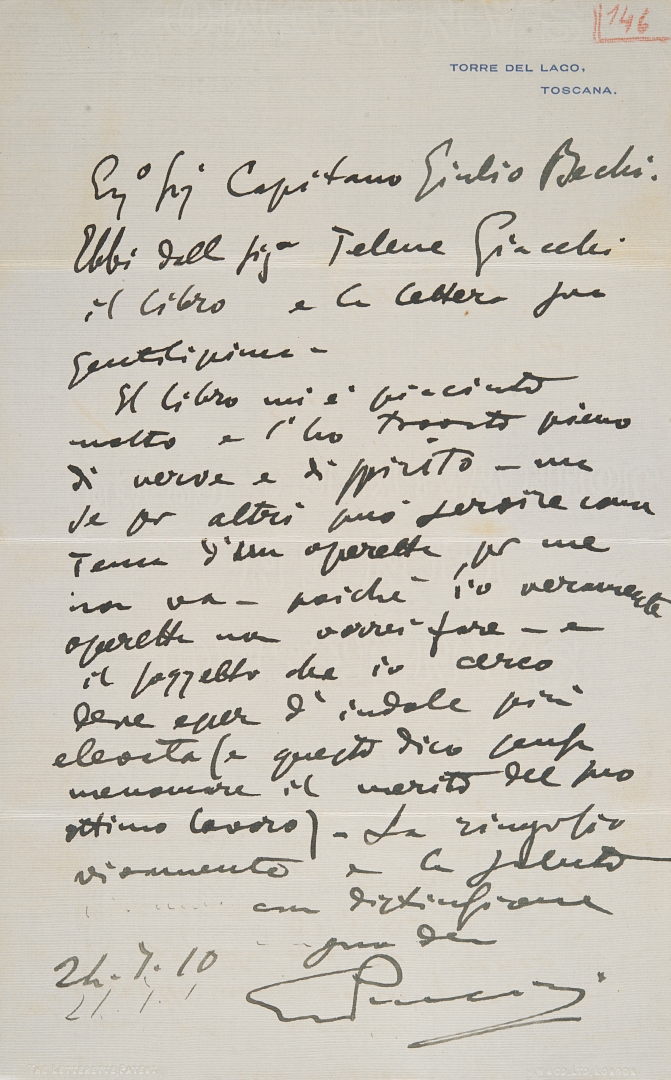 146
TORRE DEL LAGO,
TOSCANA.
Egº Sigr Capitano Giulio Bechi.
Ebbi dall Sigª Telene Giacchi
il libro e la lettera sua
gentilissima -
Il libro mi è piaciuto
molto e l'ho trovato pieno
di verve e di spirito - ma
se per altri può servire come
Tema d'un operetta, per me
non va - poiché io veramente
operetta non vorrei fare - e
il soggetto che io cerco
deve esser d'indole più
elevata (e questo dico senza
menomare il merito del suo
ottimo lavoro) - La ringrazio
vivamente e la saluto
con distinzione
suo dev
GPuccini
24.7.10